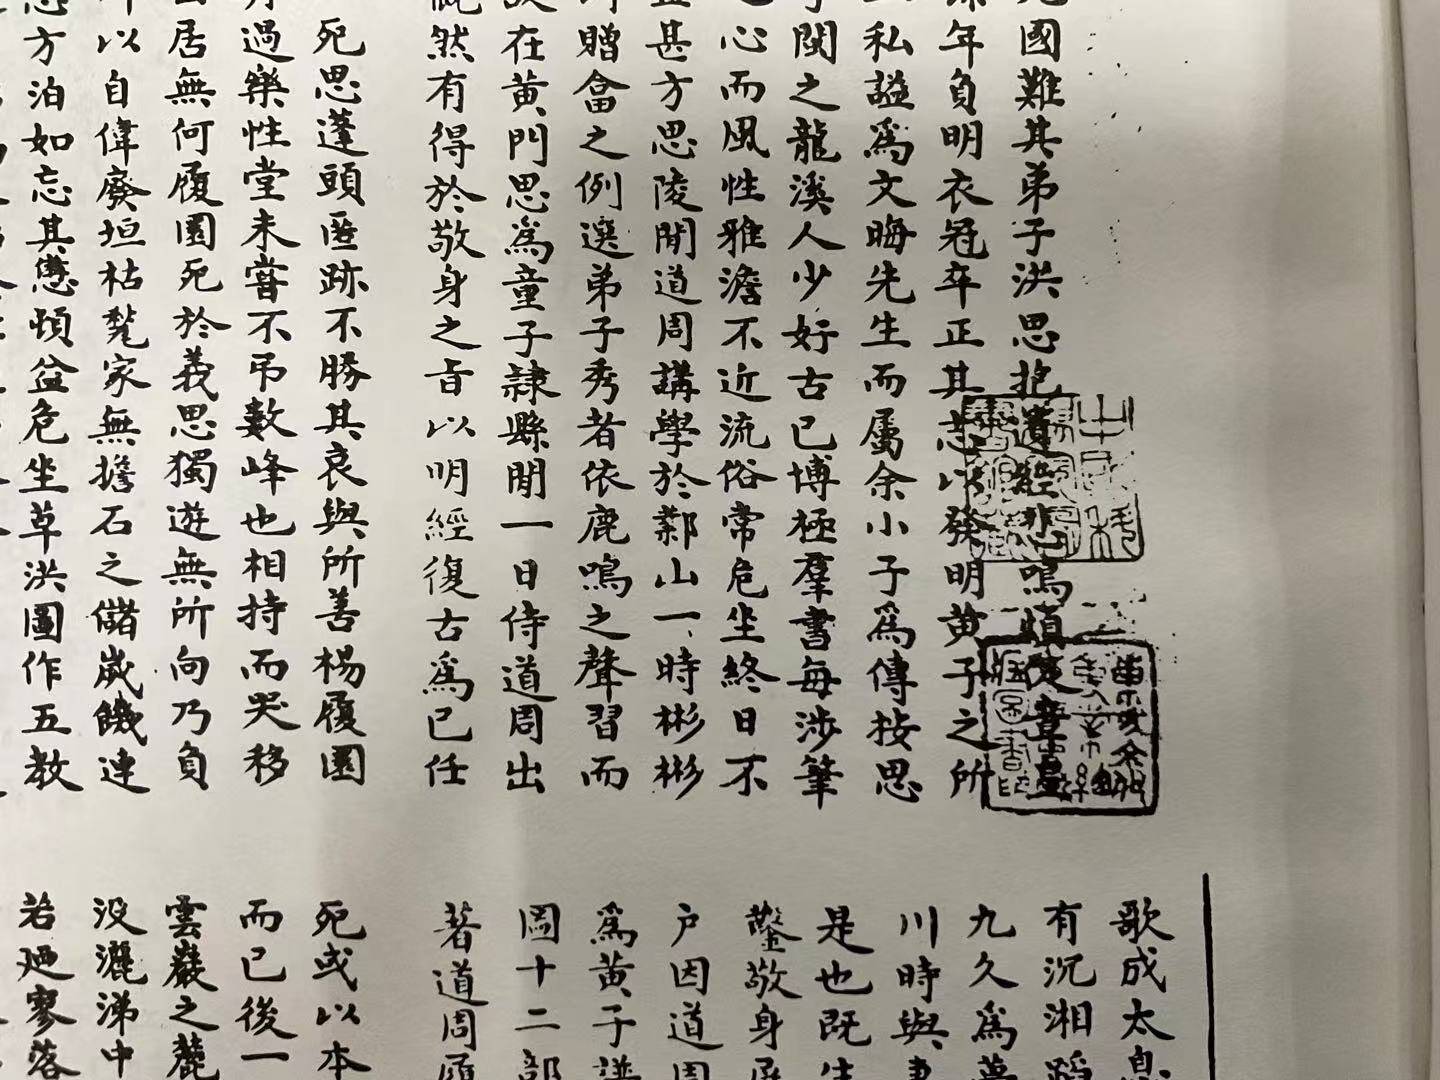 國難其弟子洪思抱遺經悲鳴
年負明衣冠卒正其志以發明黄子之所
私謚爲文晦先生而屬余小子爲傳按思
閩之龍溪人少好古已博極羣書每涉筆
心而風性雅澹不近流俗常危坐終日不
甚方思陵聞道周講學於鄴山一時彬彬
贈畣之例選弟子秀者依鹿鳴之聲習而
在黄門思爲童子隷縣閒一日侍道周出
然有得於敬身之旨以明經復古爲已任
死思蓬頭匿跡不勝其哀與所善楊履圜
過樂性堂未嘗不弔數峰也相持而哭移
居無何履圜死於義思獨遊無所向乃負
以自偉廢垣枯甃家無擔石之儲嵗饑連
方泊如忘其憊頃盆危坐草洪圖作五教
歌成太息
有沉湘蹈
九久爲
川時與
是也旣
鑿敬身
户因道周
爲黄子
圖十二部
著道周履
死或以本
而已後一
雲巖之麓
没灑涕中
若廼寥落